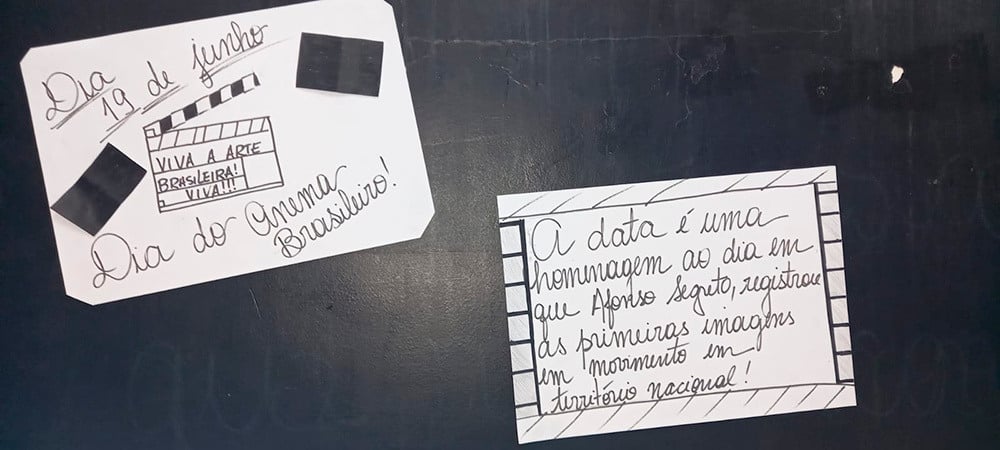 Dia
19 de junho
VIVA A ARTE
BRASILEIRA!
VIVA!!!
Dia do Cinema
Brasileiro!
A data é uma
homenagem ao dia em
que Afonso Segreto, registrou
as primeiras imagens
em movimento em
território nacional!